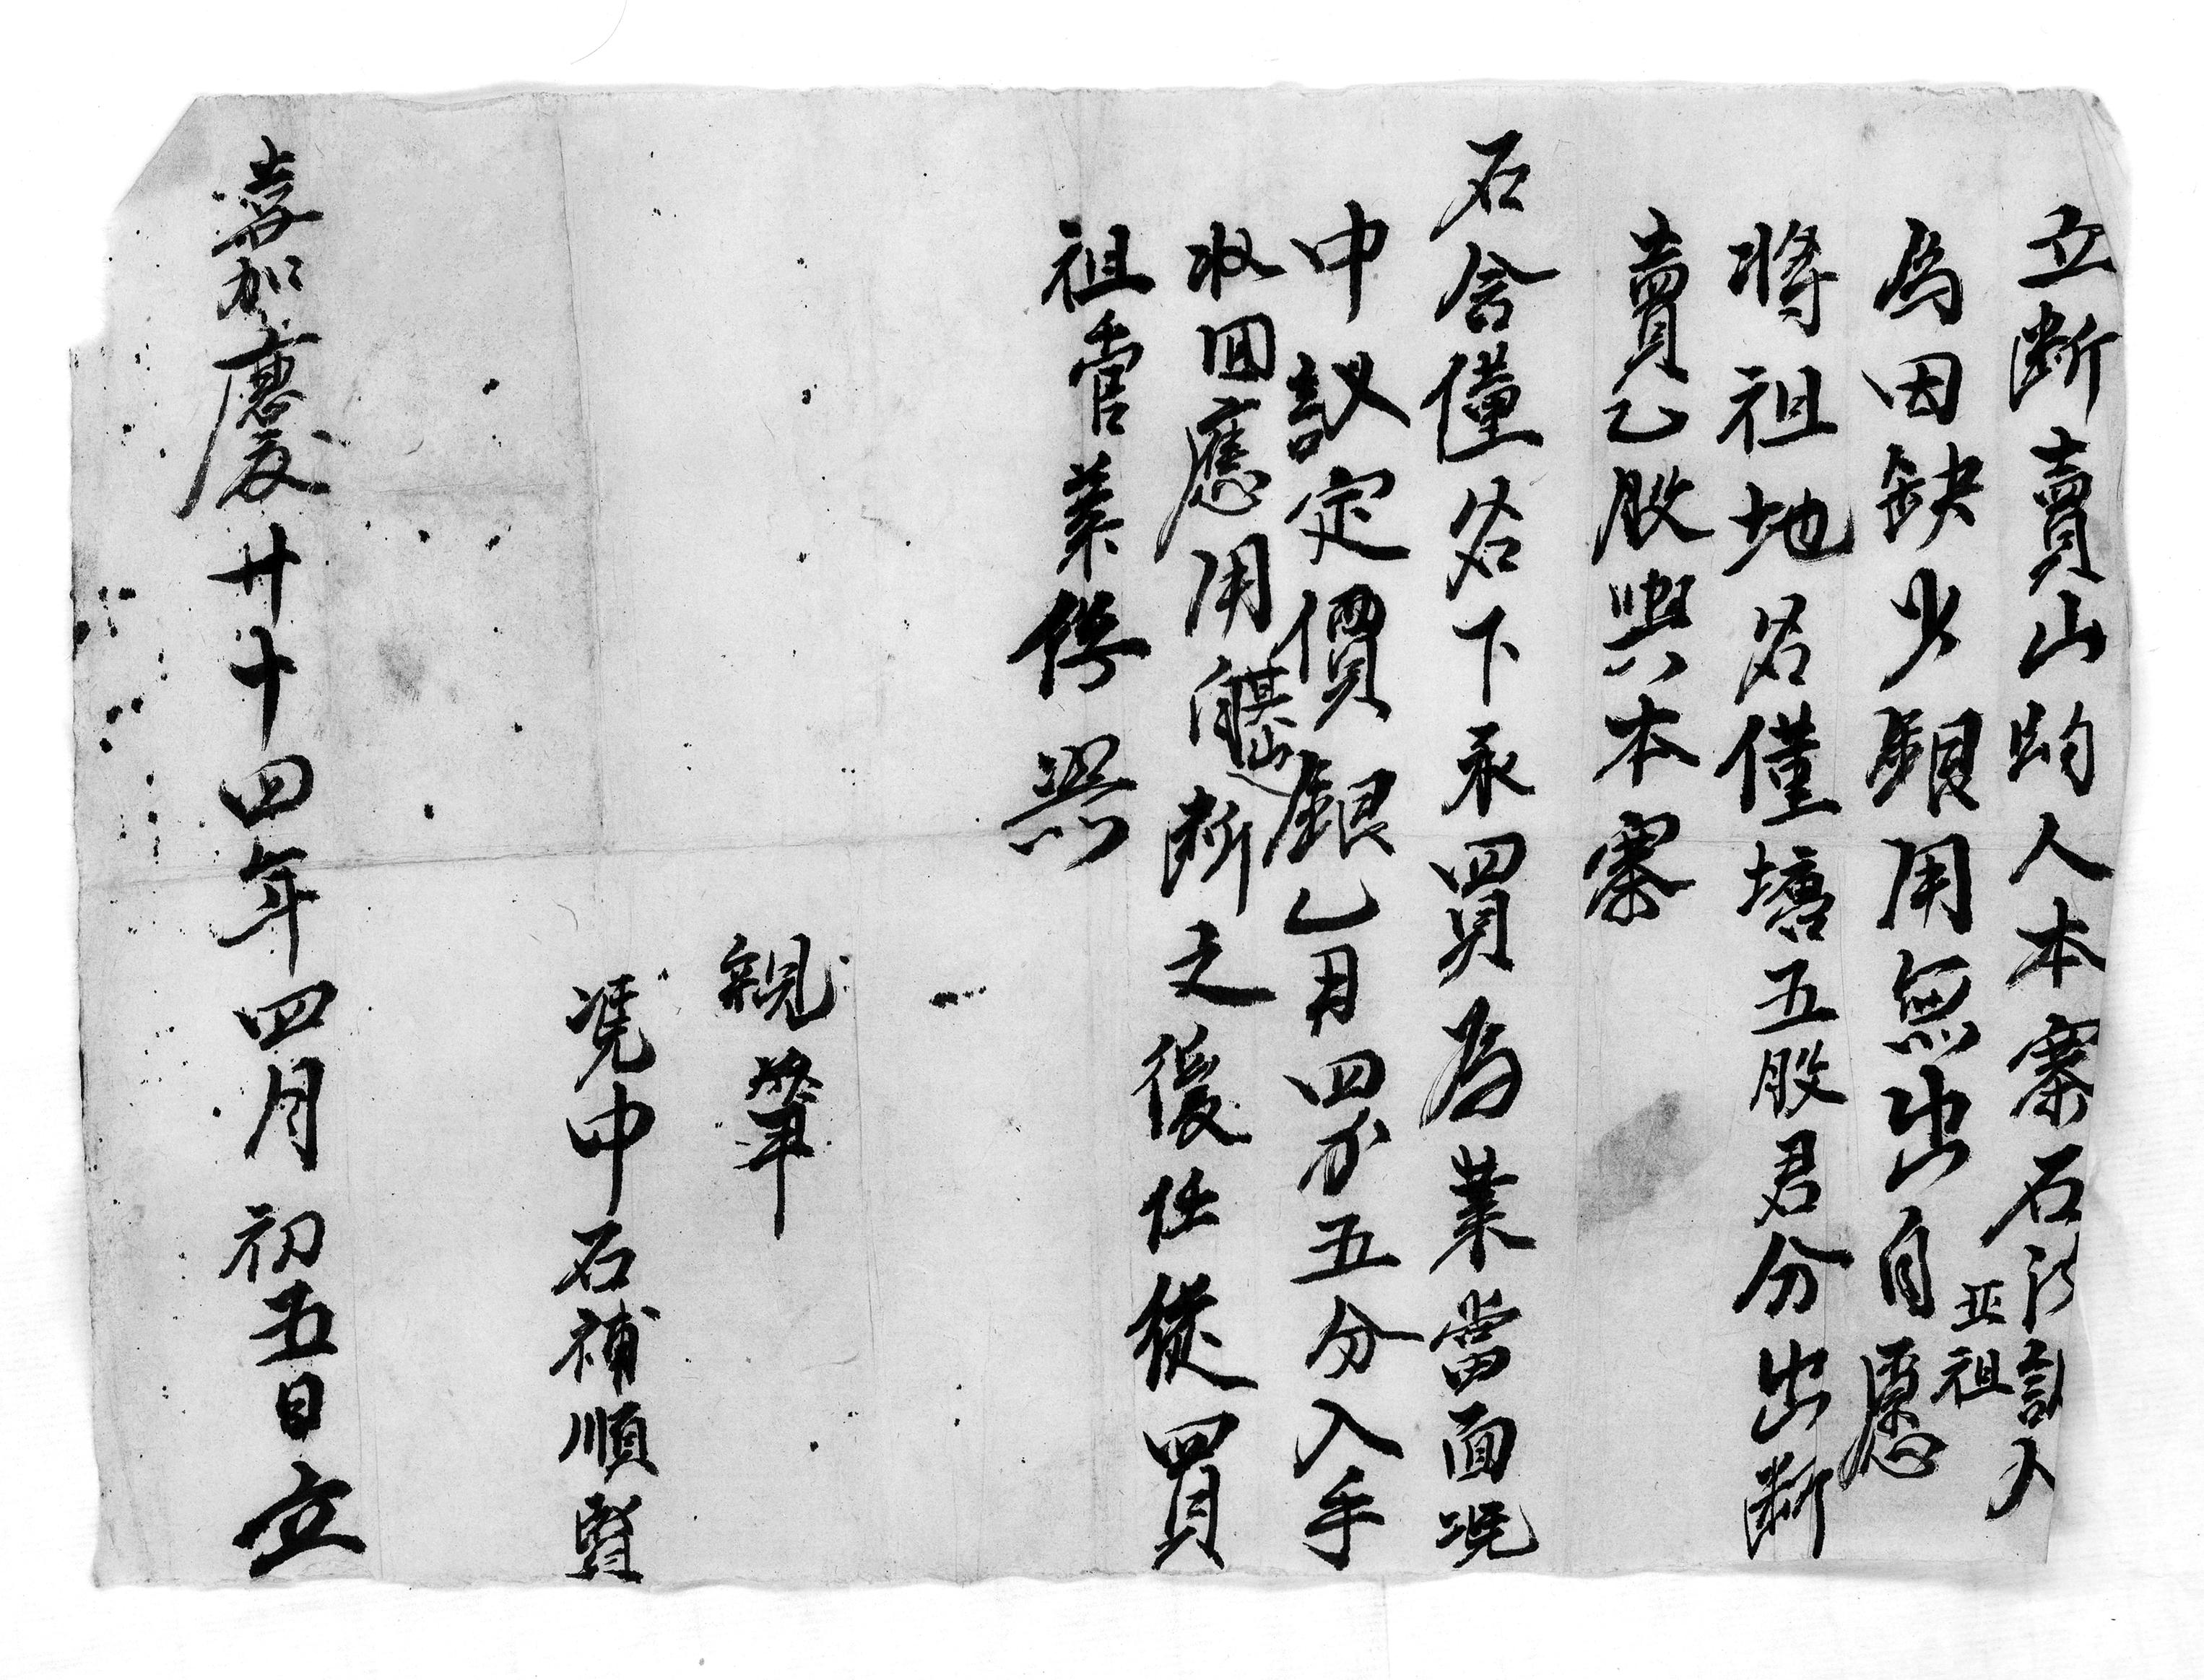 立断賣山的人本寨石
亚祖
為因缺少銀用無出自愿
將祖地名僅塘五股君分出断
賣乙股與本寨
石含僅名下承買為業當面凴
中議定價銀乙月四分五分入手
收回應用其山断之後任從買
祖管業存照
親筆
凴中石補順賢
嘉慶廿十四年四月初五日立